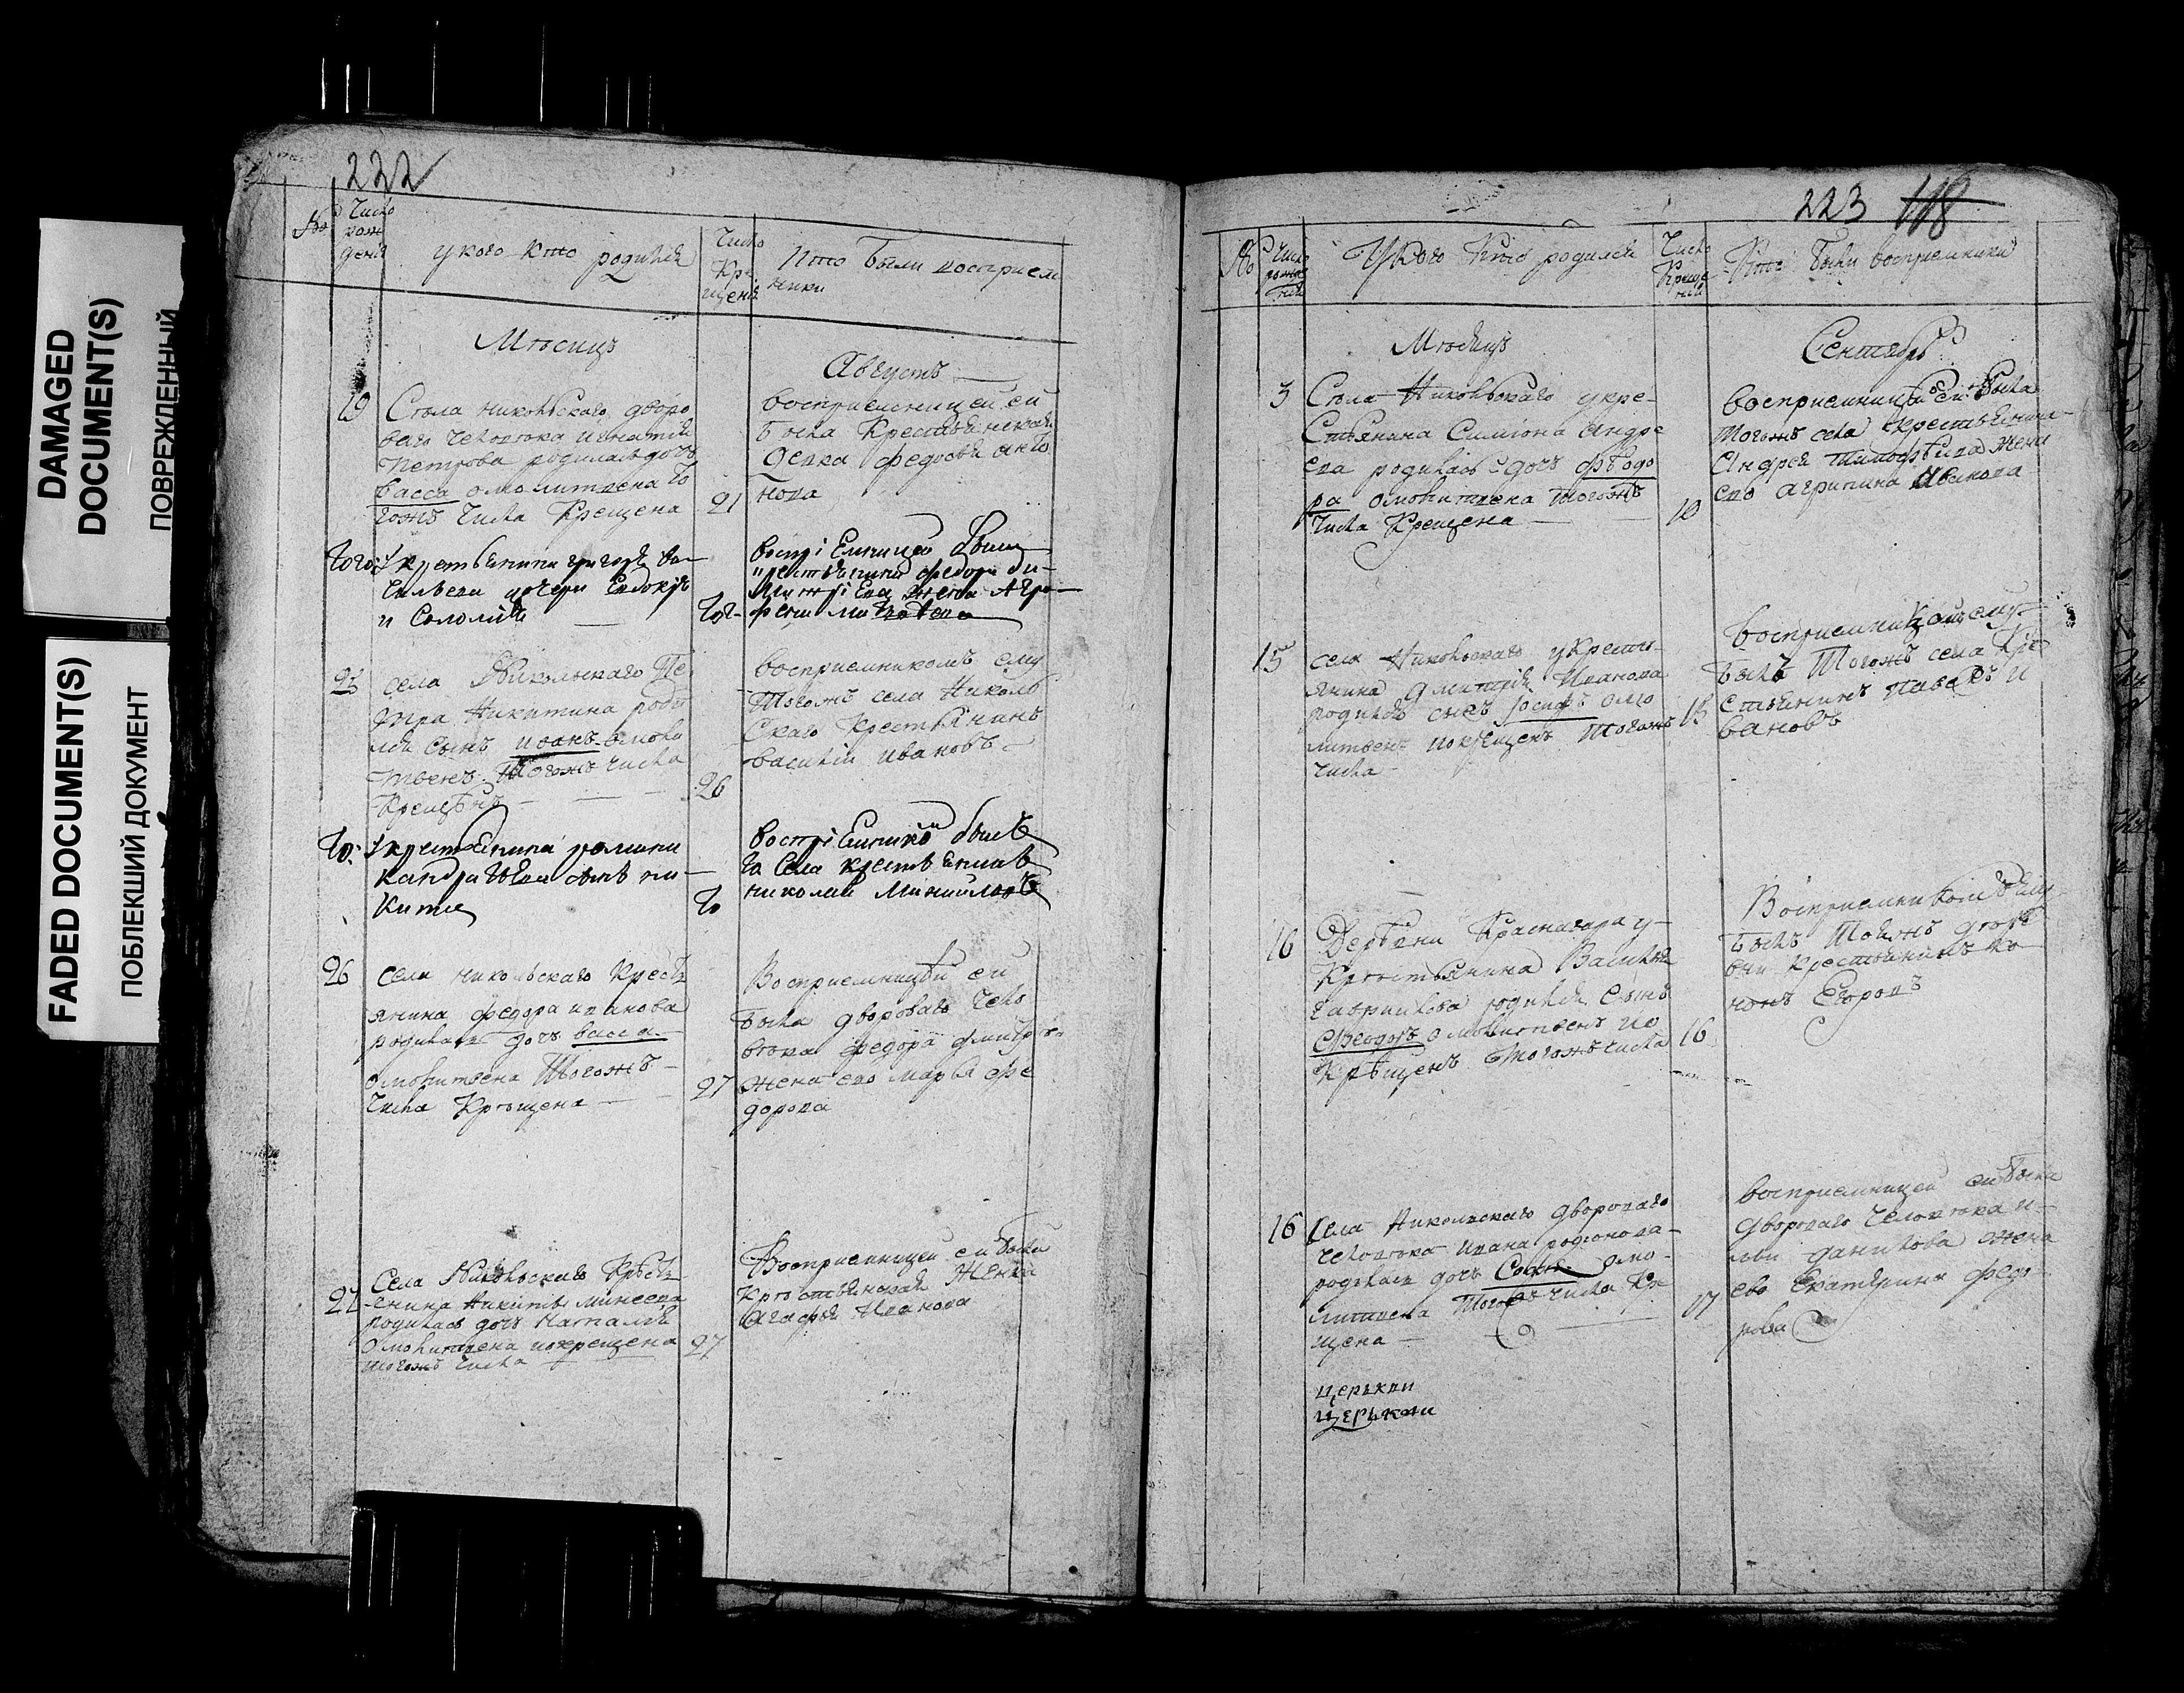 DAMAGED
DOCUMENT(S)
ПОВРЕЖДЕННЫЙ
FADED DOCUMENT(S)
ПОБЛЕКШИЙ ДОКУМЕНТ
222
№
Число
рож
дени
у кого кто родился
Число
Кре
щени
Кто были восприем
ники
Мѣсяцъ
Августъ
19
Села никольскаго дворо
ваго человѣка игнатія
петрова родилась дочь
васса омолитвена то
гожъ числа Крещена
21
восприемницей ей
была крестьянская
девка федосья анто
нова
крестьянина григоря ва
сильева дочери
и Соломия
воспріемницею была
крестьянина федора ди
митріева жена
23
села Никольскаго Пе
тра Никитина роди
лся сынъ иоанъ омоли
твенъ тогожъ числа
Крещенъ
26
восприемникомъ ему
тогожъ села Николь
скаго Крестьянинъ
василий ивановъ
То
крестьянина романа
кандратьева сынъ ни
кита
То
воспріемнико былъ
то села крестьянинъ
николай
26
села никольскаго крестъ
янина федора иванова
родилась дочь васса
омолитвена тогожъ
числа Крѣщена
27
Восприемницей ей
была двороваго чело
вѣка федора дмитре
жена его марья фе
дорова
27
Села Никольскаго Крестъ
енина Никиты минеева
родилась дочь Наталия
омолитвена и крещена
тогожъ числа
27
Восприемницей ей была
крѣстьянская женка
Агафья Иванова
223 118
№
Число
рожде
ния
У Кого Кто родился
Число
Креще
ния
Кто были восприемники
Мѣсяцъ
Сентябрь
3
Села Никольскаго укре
стьянина Симиона Андре
ева родилась дочь феодо
ра омолитвена тогожъ
числа Крещена
10
восприемницей ей была
тогожъ села крестьянина
Андрея тимофеива жена
ево агрипина Иванова
15
села Никольскаго укресть
янина Дмитрия Иванова
родился сынъ иосифъ омо
литвенъ и крещенъ тогожъ
числа
15
восприемникомъ ему
былъ тогожъ села кре
стьянинъ павелъ и
вановъ
16
Деревни Краснагара у
Крѣстьянина Василья
гаврилова родился сынъ
Феодоръ омолитвенъ и
Крѣщенъ тогожъ числа
16
Восприемникомъ ему
былъ тоежъ дере
вни крестьянинъ ко
нонъ Егоровъ
16
Села Никольскаго двороваго
человѣка ивана родионова
родилась дочь Софья омо
литвена тогожъ числа Кре
щена
17
восприемницей ей была
двороваго человѣка и
льи данилова жена
ево Екатерина федо
рова
церькви
церькови